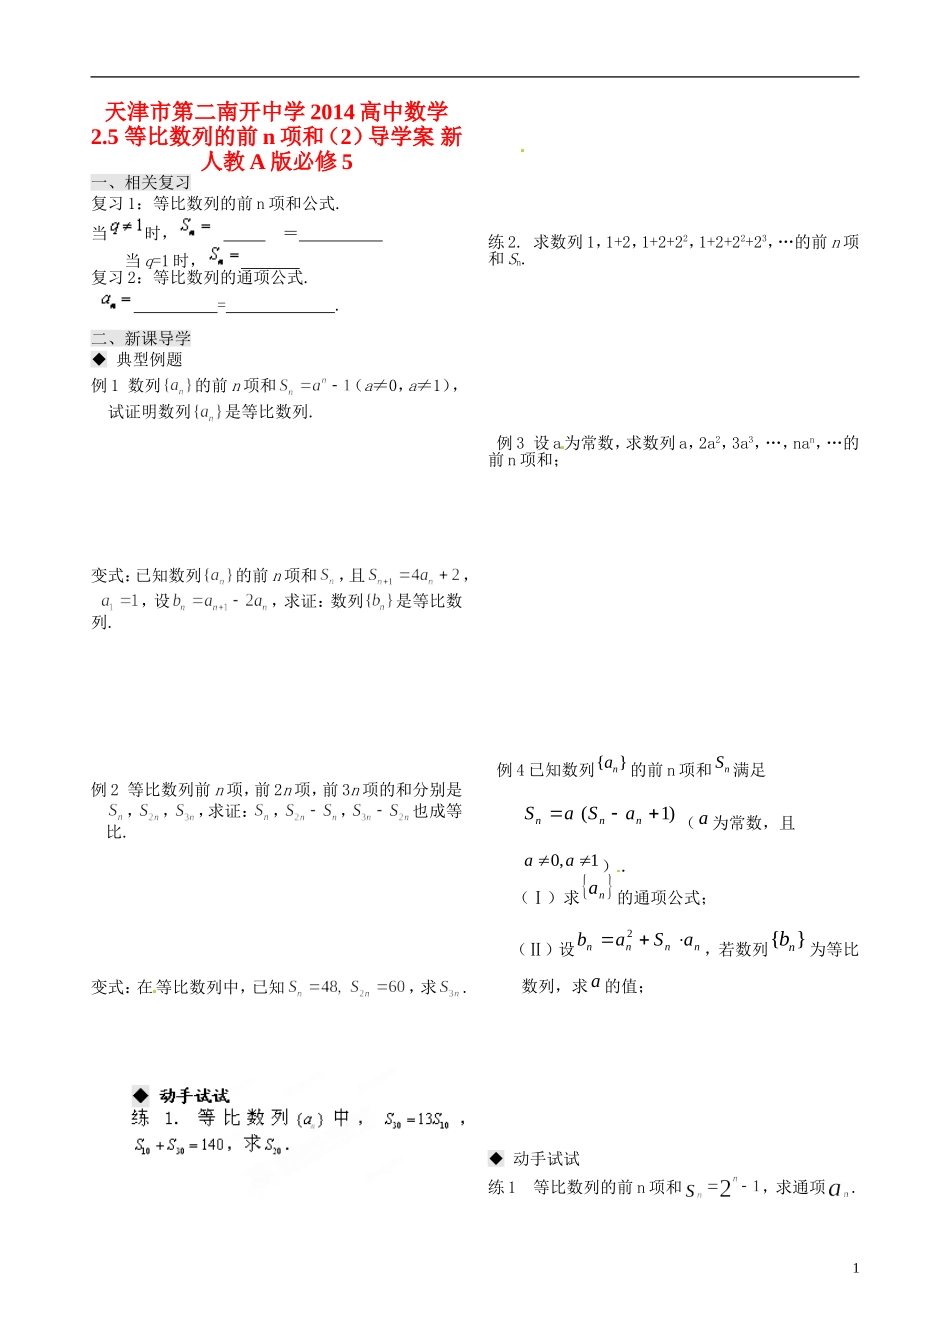 天津市第二南开中学 2014 高中数学
2.5 等比数列的前 n 项和（2）导学案 新
人教 A 版必修 5
一、相关复习
复习 1：等比数列的前 n 项和公式.
当 q≠1 时，Sₙ = _____ = __________
当 q=1 时，Sₙ = _______
复习 2：等比数列的通项公式.
aₙ = __________=_____________.
二、新课导学
◆ 典型例题
例 1 数列{aₙ}的前 n 项和 Sₙ =aⁿ - 1（a≠0，a≠1），
试证明数列{aₙ}是等比数列.
变式：已知数列{aₙ}的前 n 项和 Sₙ，且 Sₙ₊₁ =4aₙ + 2，
a₁ =1，设 bₙ =aₙ₊₁ - 2aₙ，求证：数列{bₙ}是等比数
列.
例 2 等比数列前 n 项，前 2n 项，前 3n 项的和分别是
Sₙ，S₂ₙ，S₃ₙ，求证：Sₙ，S₂ₙ - Sₙ，S₃ₙ - S₂ₙ 也成等
比.
变式：在等比数列中，已知 Sₙ =48, S₂ₙ =60，求 S₃ₙ.
◆ 动手试试
练 1. 等比数列{aₙ}中，S₃₀ =13S₁₀，
S₁₀ + S₃₀ =140，求 S₂₀.
练 2. 求数列 1，1+2，1+2+2²，1+2+2²+2³，…的前 n 项
和 Sₙ.
例 3 设 a 为常数，求数列 a，2a²，3a³，…，naⁿ，…的
前 n 项和；
例 4 已知数列{aₙ}的前 n 项和 Sₙ 满足
Sₙ = a (Sₙ - aₙ +1)（a 为常数，且
a ≠0, a ≠1）.
（Ⅰ）求{aₙ}的通项公式；
（Ⅱ）设 bₙ = aₙ² + Sₙ · aₙ，若数列{bₙ}为等比
数列，求 a 的值；
◆ 动手试试
练 1 等比数列的前 n 项和 sₙ =2ⁿ - 1，求通项 aₙ.
1